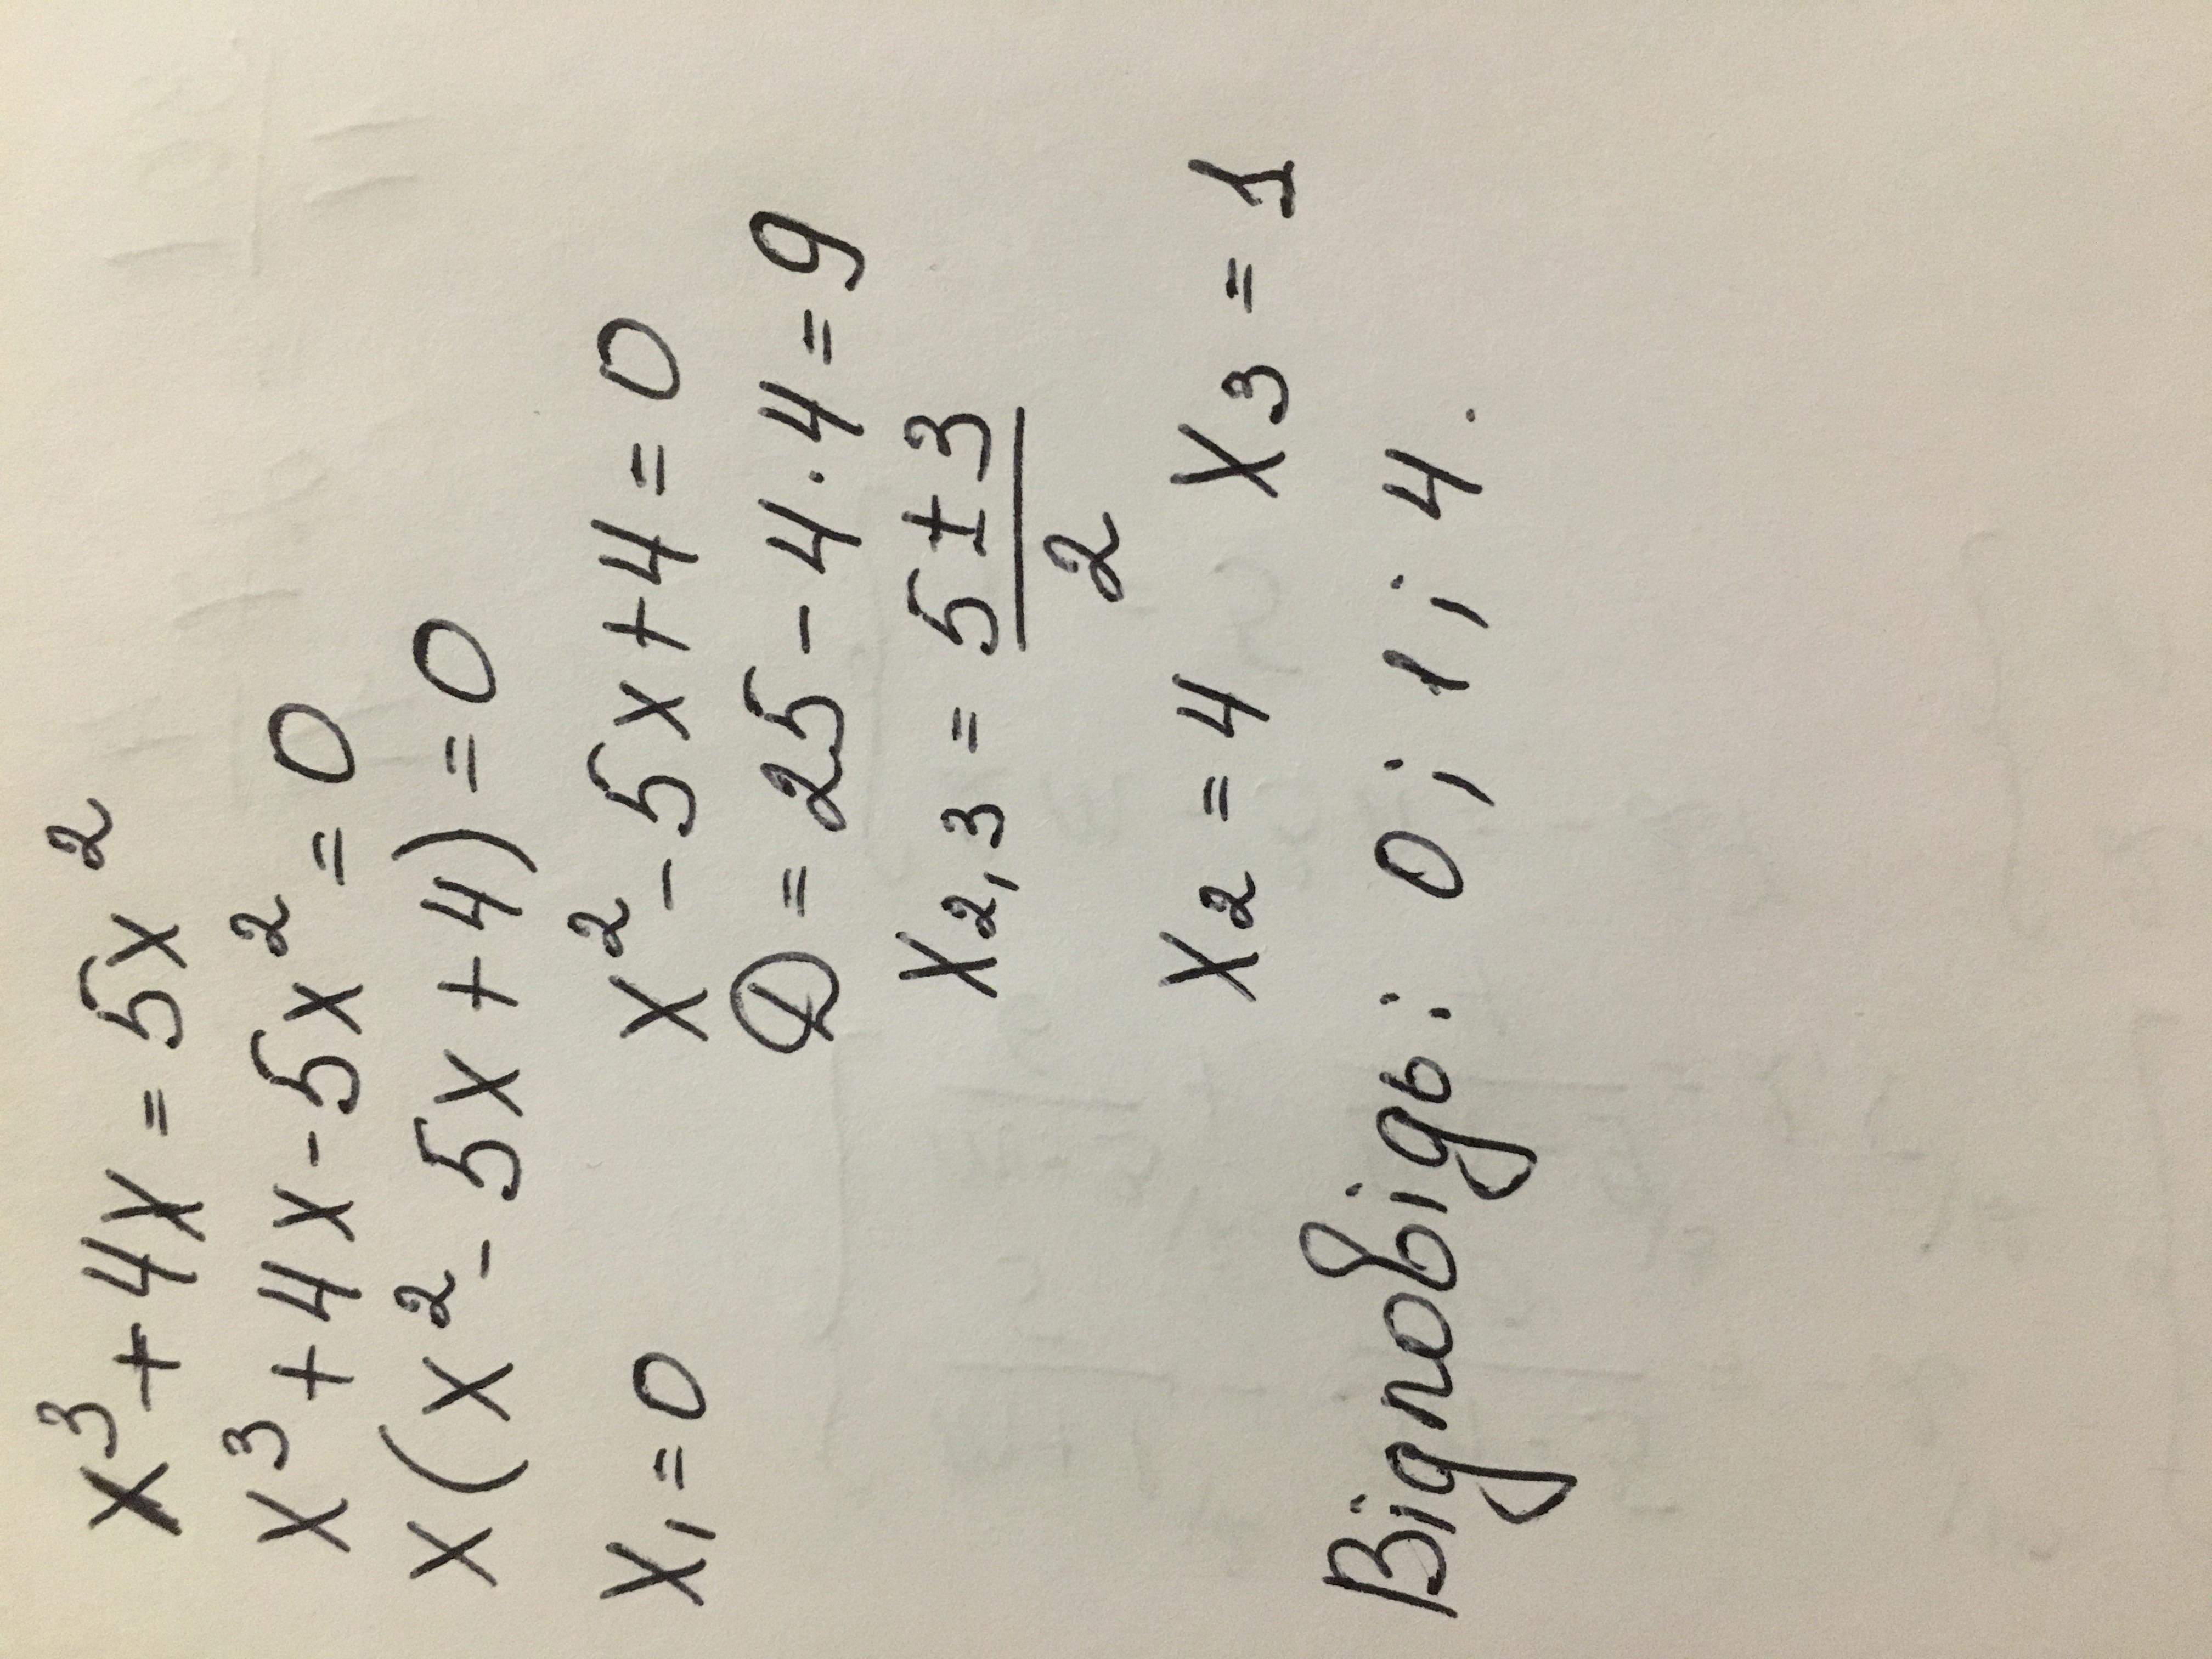 x³+4x=5x²
x³+4x-5x²=0
x(x²-5x+4)=0
x₁=0 x²-5x+4=0
D=25-4·4=9
x₂,₃=5±3/2
x₂=4 x₃=1
Відповідь: 0; 1; 4.